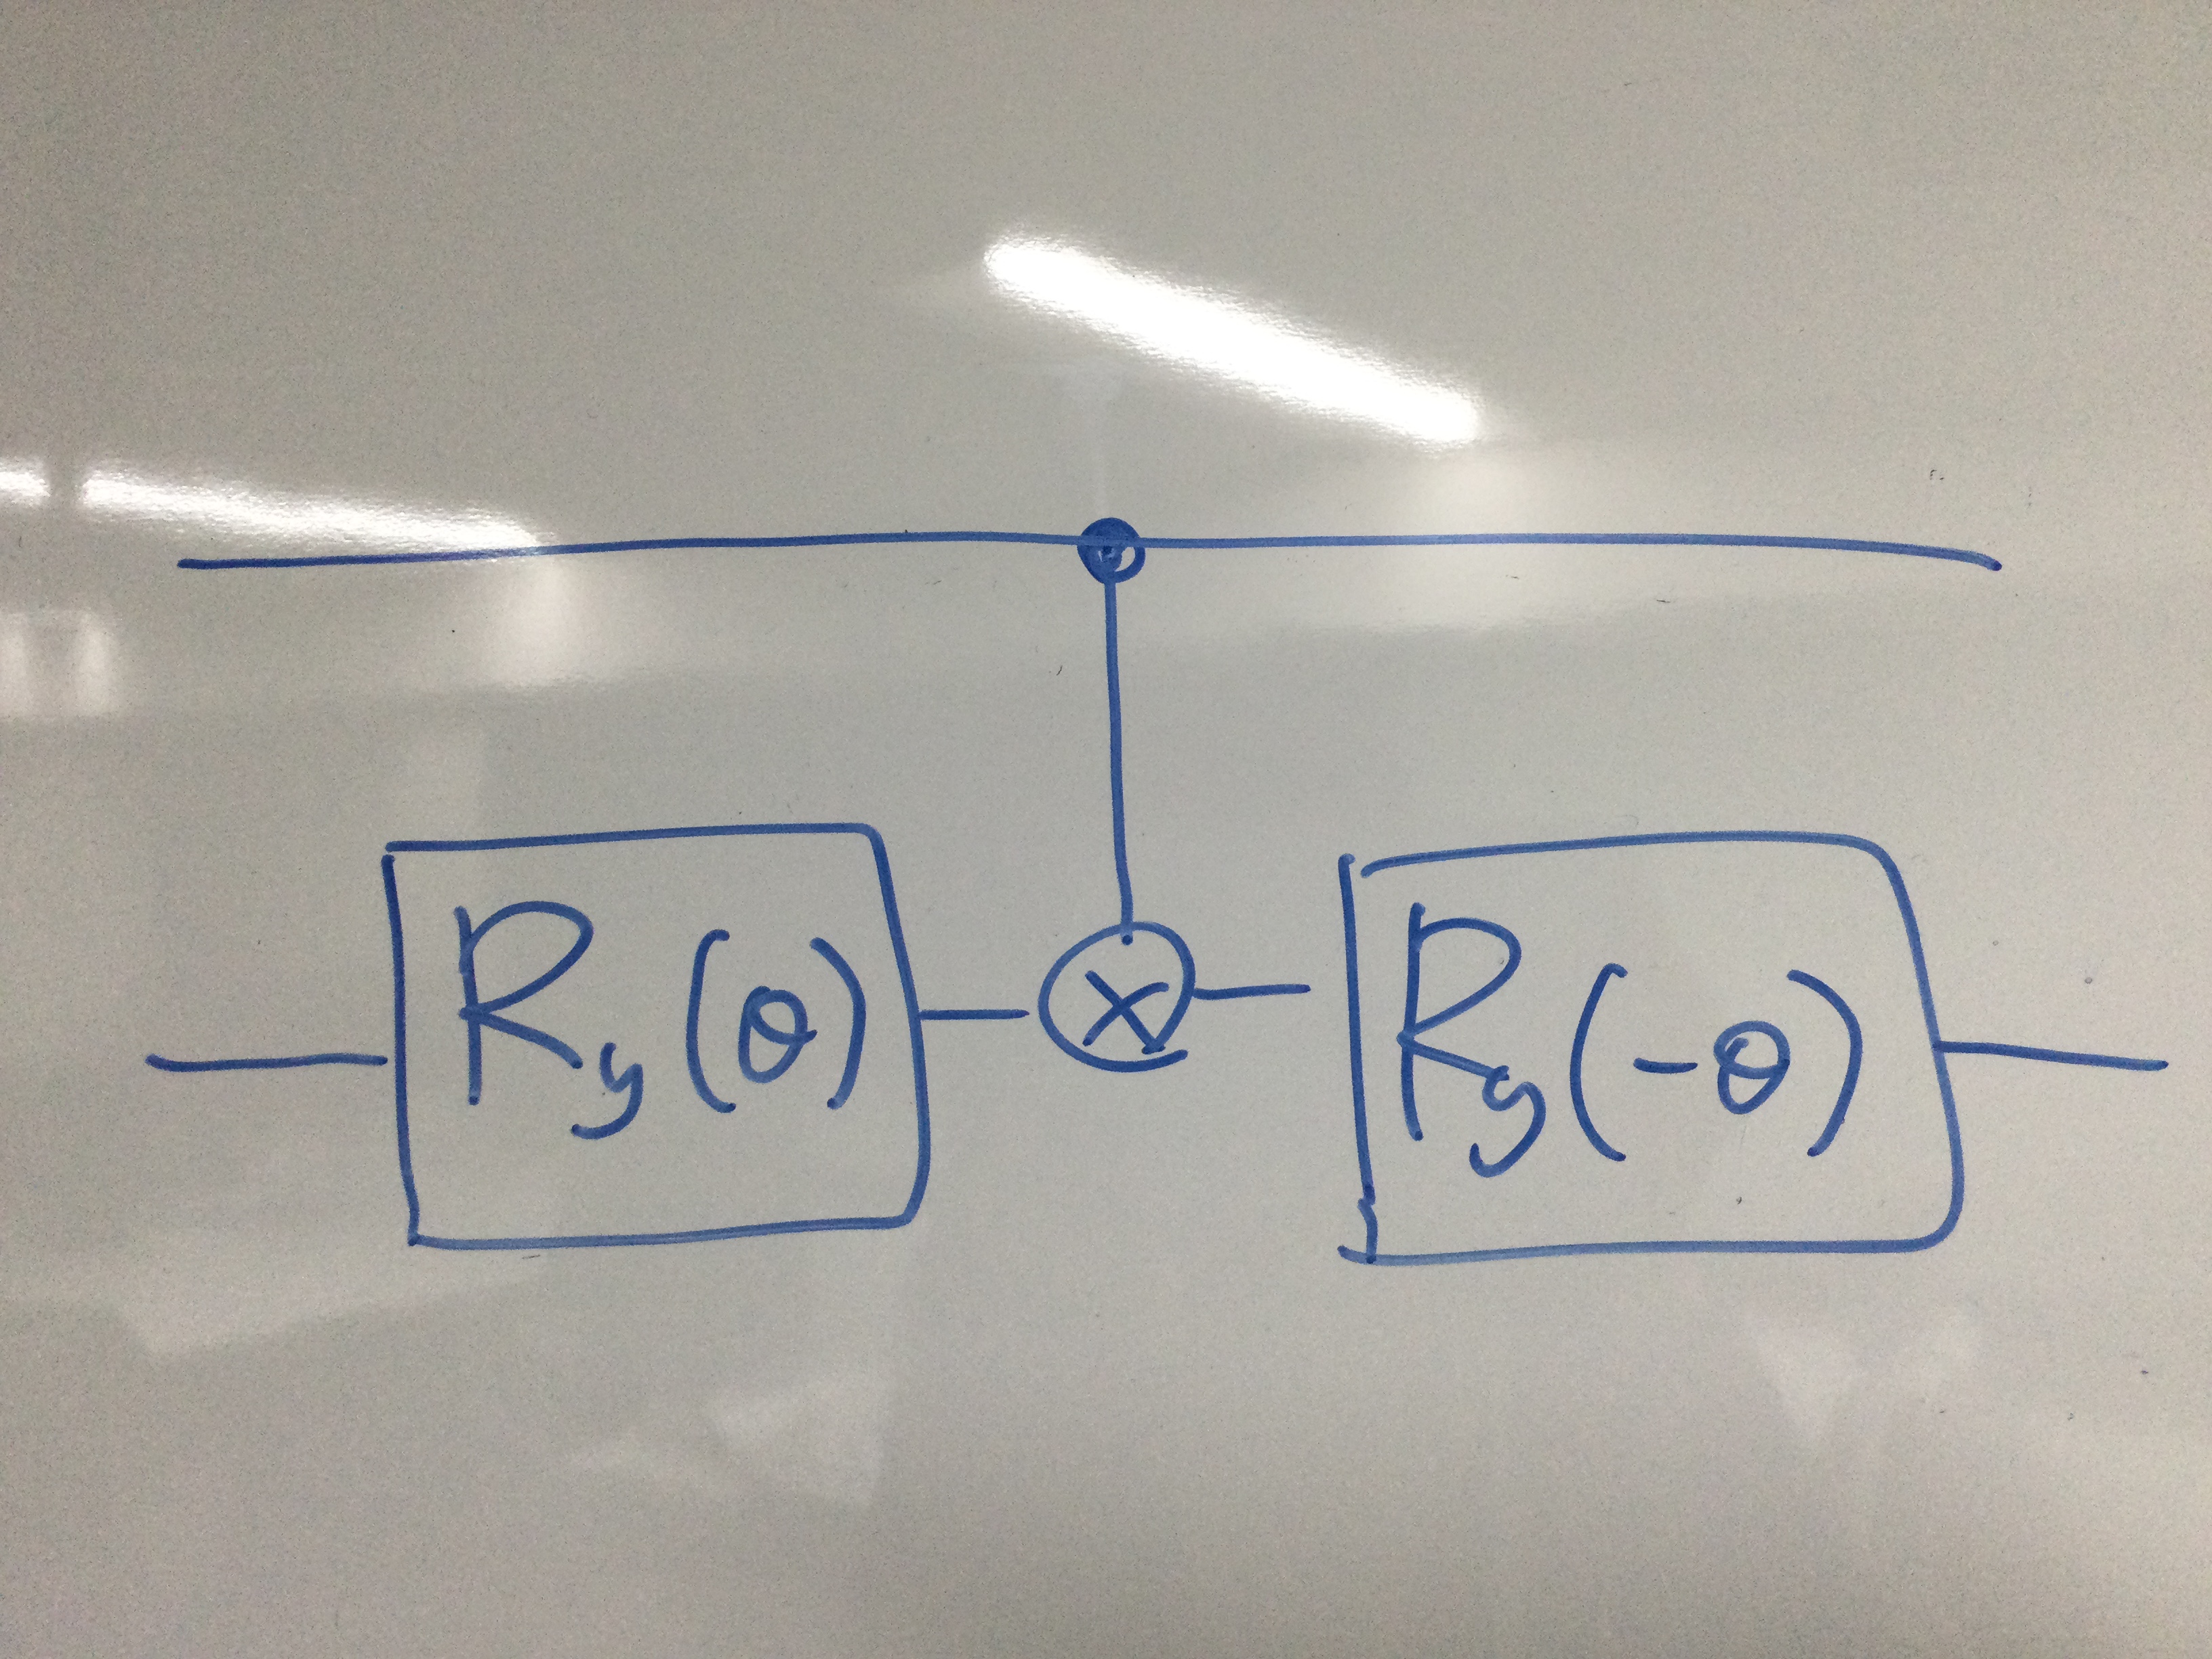 Ry(θ) X Ry(-θ)